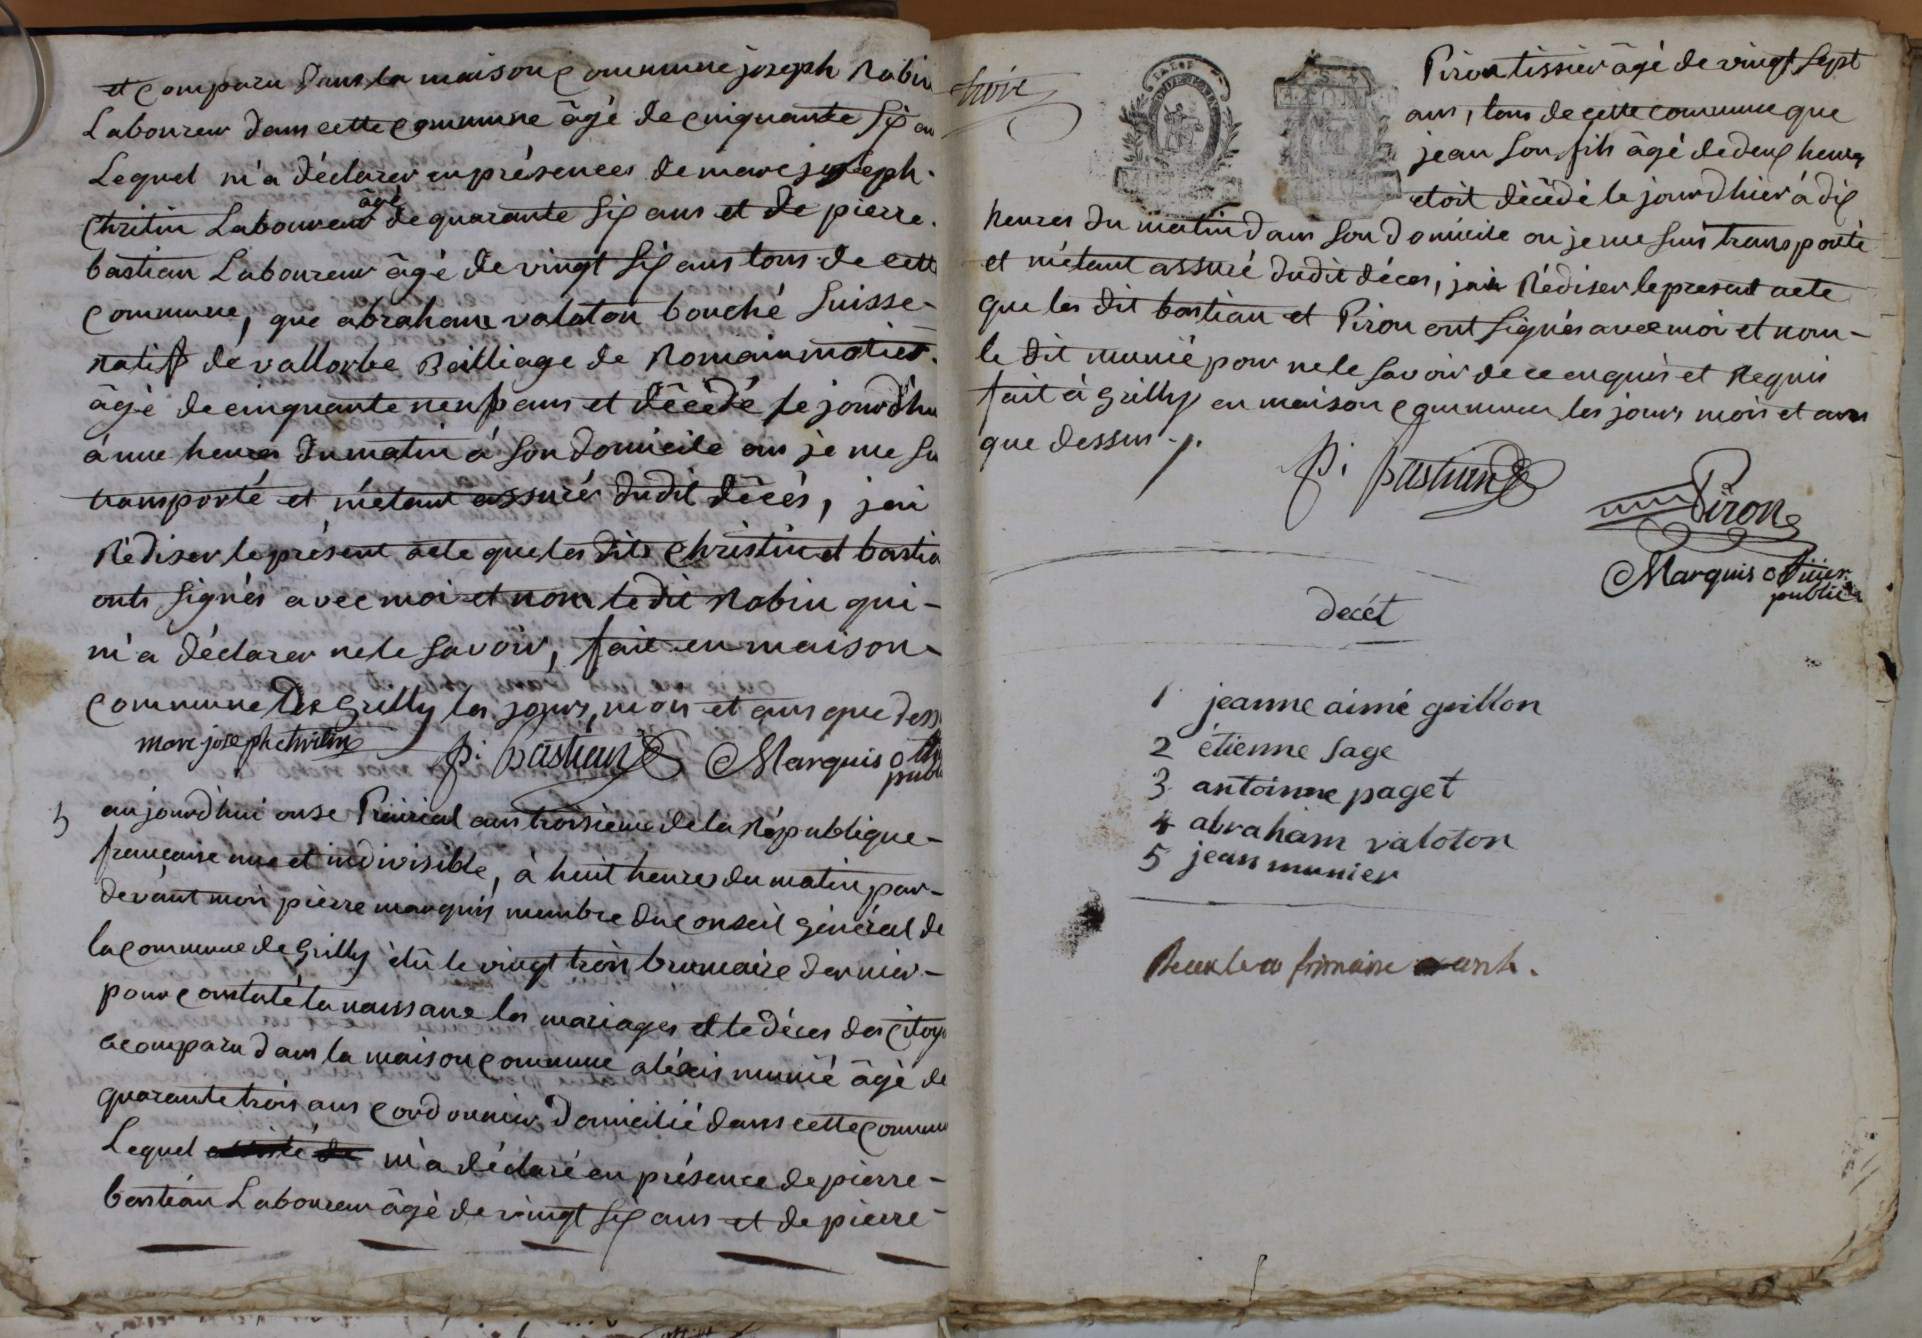 et comparu dans la maison commune joseph Robin
Laboureur dans cette commune âgé de cinquante six an
Lequel m'a déclarer en présences de marc joseph
Chritin Laboureur âgé de quarante six ans et de pierre
bastian Laboureur âgé de vingt six ans tous de cette
commune, que abraham valoton bouché Suisse
natif de vallorbe Bailliage de Romainmotier
âgé de cinquante neuf ans et décédé le jourdhu
à une heures du matin à son domicile ou je me su
transporté et m'étant assurér dudit décés, jai
Rédiser le présent acte que les dits Christin et bastia
onts signés avec moi et non le dit Robin qui
m'a déclarer ne le savoir, fait en maison
commune De Grilly les jours, mois et ans que dess
marc joseph chritin p: bastian Marquis off
publ
5 aujourd'hui onse Prairial ans troisieme de la République
française une et indivisible, à huit heures du matin par
devant moi pierre marquis membre du conseil général de
la commune de Grilly élû le vingt trois brumaire dernier
pour constaté la naissane les mariages et le déces des citoy
a comparu dans la maison commune aléxis munié âgé de
quarante trois ans cordonnier domicilié dans cette commun
Lequel m'a déclaré en présence de pierre
bastian Laboureur âgé de vingt six ans et de pierre
troix
Piron tissier âgé de vingt sept
ans, tous de cette commune que
jean son fils âgé de deux heures
etoit décédé le jourdhier à dix
heures du matin dans son domicile ou je me suis transporté
et m'étant assuré dudit déces, jai Rédiser le present acte
que les dit bastian et Piron ont signés avec moi et non
le dit munié pour ne le savoir de ce enquis et Requis
fait à Grilly en maison commune les jours mois et ans
que dessus
p: bastian
Piron
Marquis officier
public
decét
1 jeanne aimé grillon
2 étienne sage
3 antoinne paget
4 abraham valoton
5 jean munier
frimaire an 4.